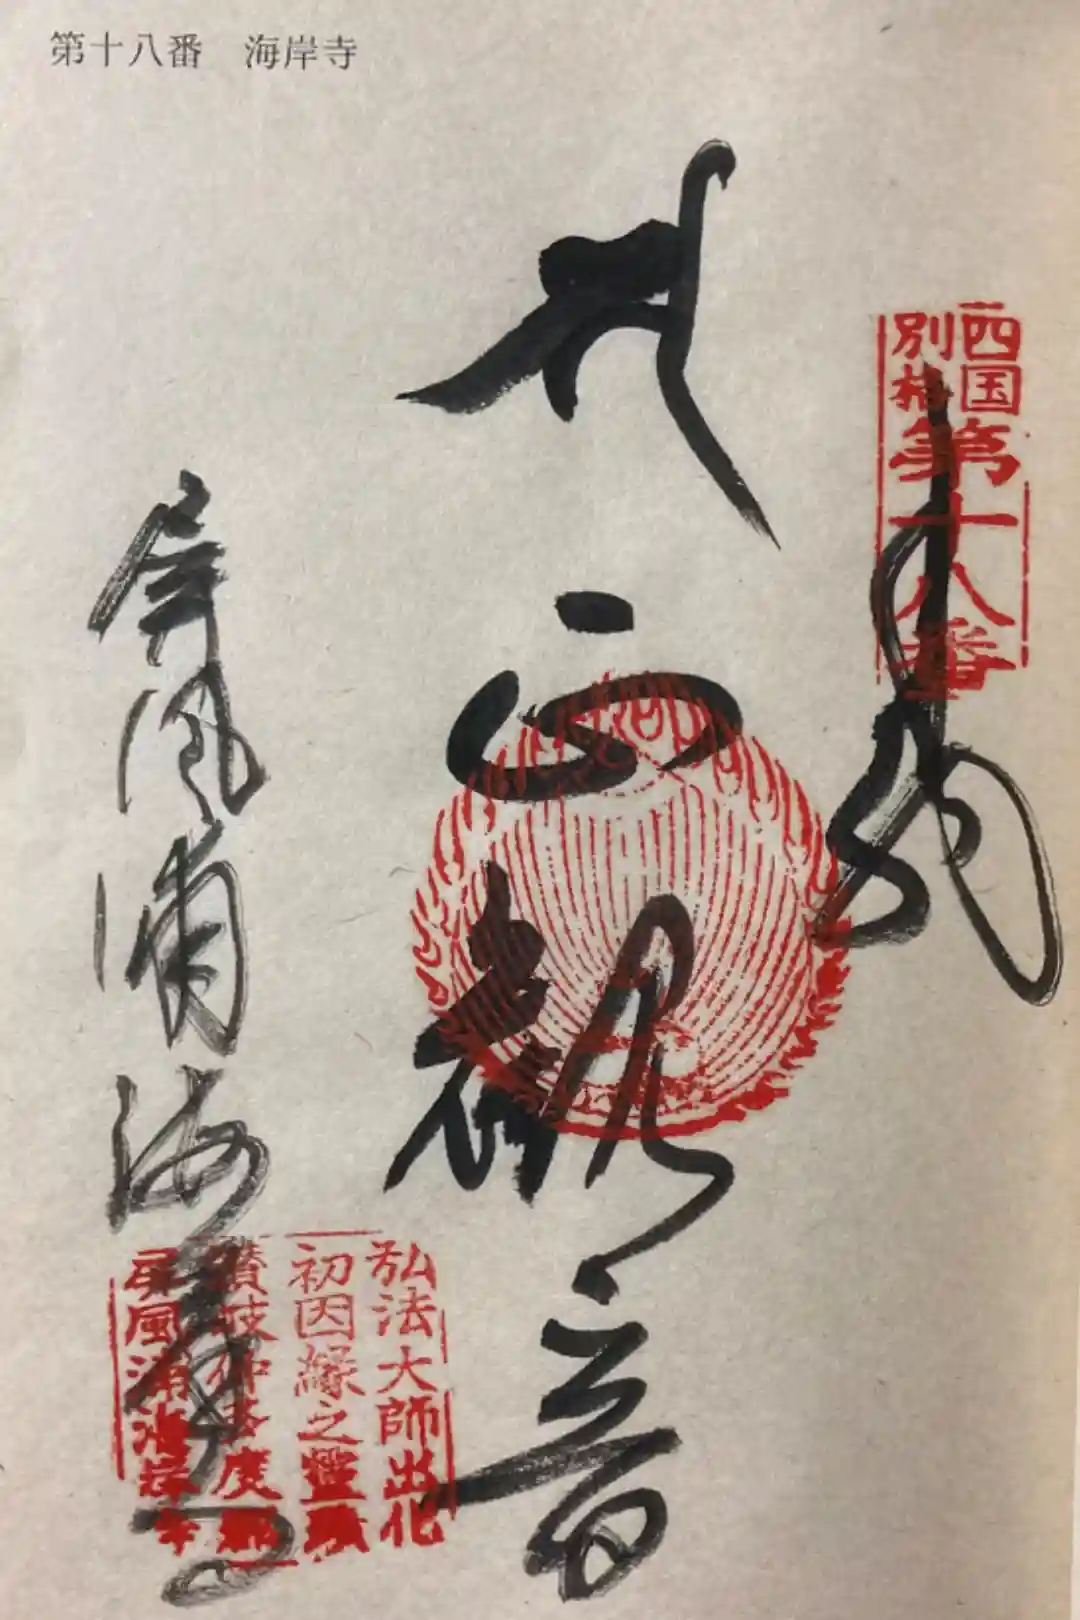 第十八番　海岸寺
四国
別格
第十八番
奉納
正観音
屏風浦海岸寺
弘法大師出化
初因縁之霊跡
讃岐仲多度郡
屏風浦海岸寺